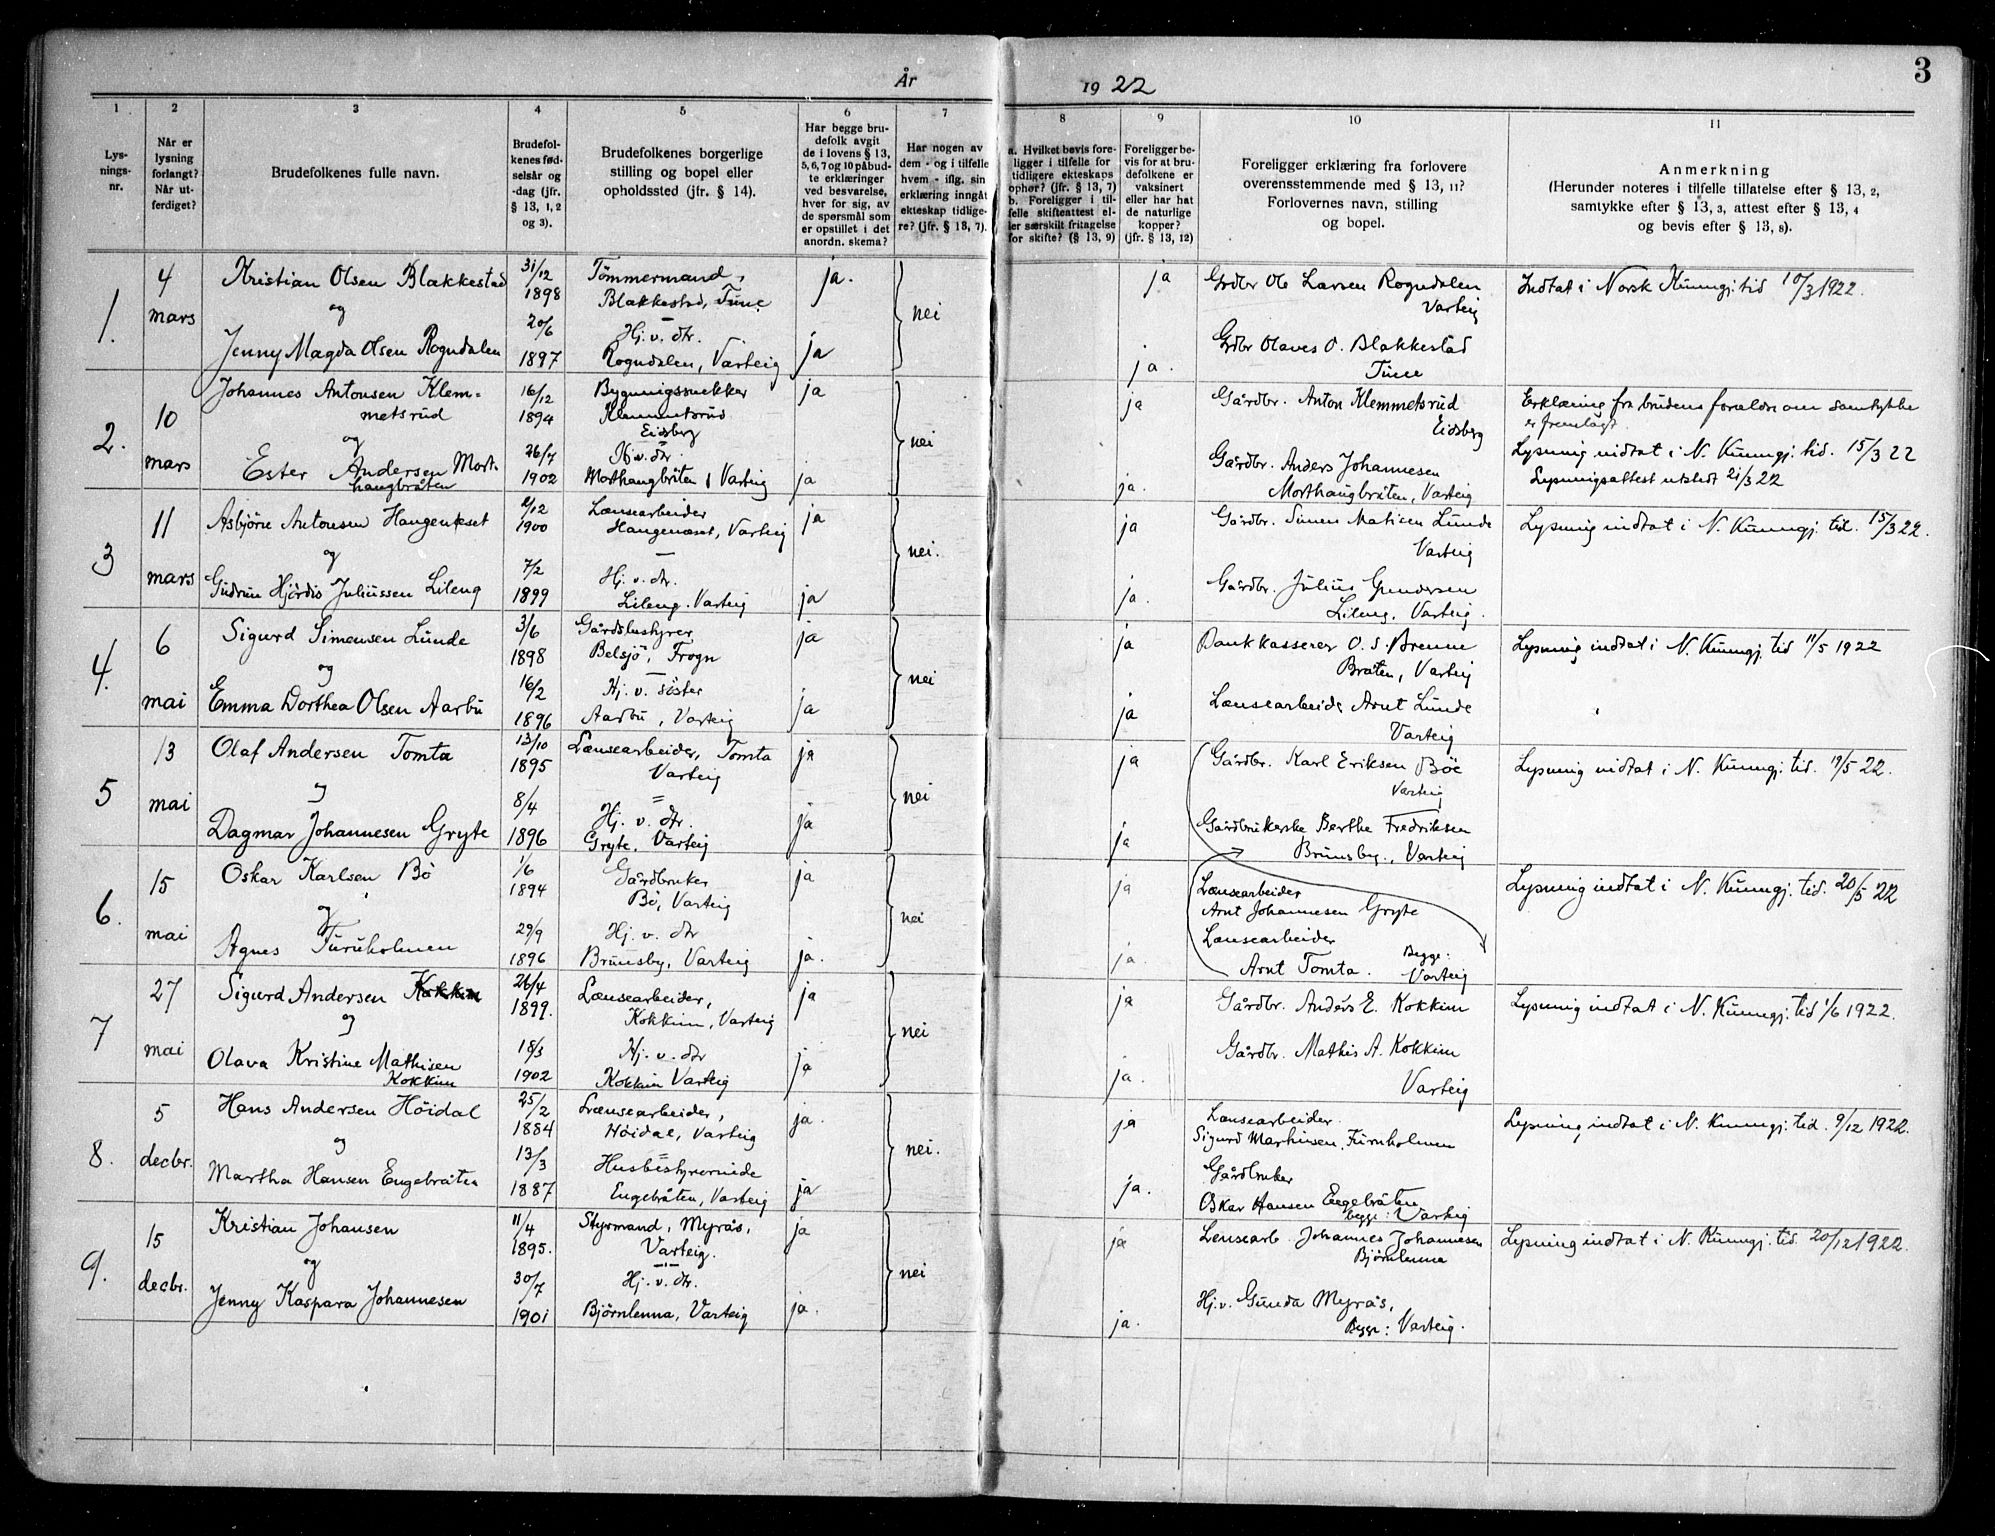 3
År 1922
1 2 3 4 5 6 7 8 9 10 11
Lys-
nings-
nr.
Når er
lysning
forlangt?
Når ut-
ferdiget?
Brudefolkenes fulle navn.
Brudefol-
kenes fød-
selsår og
-dag (jfr.
§ 13, 1, 2
og 3).
Brudefolkenes borgerlige
stilling og bopel eller
opholdssted (jfr. § 14).
Har begge bru-
defolk avgit
de i lovens § 13,
5, 6, 7 og 10 påbud-
te erklæringer
ved besvarelse,
hver for sig, av
de spørsmål som
er opstillet i det
anordn. skema?
Har nogen av
dem - og i tilfelle
hvem - iflg. sin
erklæring inngåt
ekteskap tidlige-
re? (jfr. § 13, 7).
a. Hvilket bevis fore-
ligger i tilfelle for
tidligere ekteskaps
ophør? (jfr. § 13, 7)
b. Foreligger i til-
felle skifteattest el-
ler særskilt fritagelse
for skifte? (§ 13, 9)
Foreligger be-
vis for at bru-
defolkene er
vaksinert
eller har hat
de naturlige
kopper?
(jfr. § 13, 12)
Foreligger erklæring fra forlovere
overensstemmende med § 13, 11?
Forlovernes navn, stilling
og bopel.
Anmerkning
(Herunder noteres i tilfelle tillatelse efter § 13, 2,
samtykke efter § 13, 3, attest efter § 13, 4
og bevis efter § 13, 8).
1.
4
mars
Kristian Olsen Blakkestad
og
Jenny Magda Olsen Rogndalen
31/12
1898
20/6
1897
Tömmermand,
Blakkestad, Tune
Hj. v. dtr.
Rogndalen, Varteig
ja.
ja
nei
ja
ja.
Grdbr Ole Larsen Rogndalen
Varteig
Grdbr Olaves O. Blakkestad
Tune
Indtat i Norsk Kunngj. tid 10/3 1922.
2.
10
mars
Johannes Antonsen Klem-
metsrud
og
Ester Andersen Mort-
haugbråten
16/12
1894
26/7
1902
Bygningssnekker
Klemmetsrud
Eidsberg
Hj. v. dtr.
Morthaugbråten i Varteig
ja
ja
nei
ja
ja.
Gårdbr. Anton Klemmetsrud
Eidsberg
Gårdbr. Anders Johannesen
Morthaugbråten, Varteig
Erklæring fra brudens forældre om samtykke
er fremlagt.
Lysning indtat i N. Kunngj. tid. 15/3 22
Lysningsattest utstedt 21/3 22
3
11
mars
Asbjörn Antonsen Haugenæset
og
Gudrun Hjördis Juliussen Lileng
/12
1900
7/2
1899
Lænsearbeider
Haugenæset, Varteig
Hj. v. dtr.
Lileng. Varteig
ja
ja
nei.
ja
ja.
Gårdbr. Simen Matisen Lunde
Varteig
Gårdbr. Julius Gundersen
Lileng, Varteig.
Lysning indtat i N. Kunngj. tid. 15/3 22.
4.
6
mai
Sigurd Simensen Lunde
og
Emma Dorthea Olsen Aarbu
3/6
1898
16/2
1896
Gårdsbestyrer,
Belsjö, Frogn
Hj. v. söster
Aarbu, Varteig
ja
ja
nei
ja
ja
Bankkasserer O. S. Brenne
Bråten, Varteig
Lænsearbeider Arnt Lunde
Varteig
Lysning indtat i N. Kunngj. tid 11/5 1922
5
13
mai
Olaf Andersen Tomta
og
Dagmar Johannesen Gryte
13/10
1895
8/4
1896
Lænsearbeider, Tomta
Varteig
Hj. v. dtr.
Gryte. Varteig
ja
ja
nei
ja
ja
Gårdbr. Karl Eriksen Böe
Varteig
Gårdbrukerske Berthe Fredriksen
Brunsby, Varteig
Lysning indtat i N. Kunngj. tid. 19/5 22.
6.
15
mai
Oskar Karlsen Bö
og
Agnes Furuholmen
1/6
1894
29/9
1896
Gårdbruker
Bö, Varteig
Hj. v. dtr
Brunsby, Varteig
ja
ja.
nei
ja
ja.
Lænsearbeider
Arnt Johannesen Gryte
Lænsearbeider
Arnt Tomta.
Begge:
Varteig
Lysning indtat i N. Kunngj. tid. 20/5 22
7
27
mai
Sigurd Andersen Kokkim
og
Olava Kristine Mathisen
Kokkim
26/4
1899.
18/3
1902
Lænsearbeider,
Kokkim, Varteig
Hj. v. dtr
Kokkim Varteig
ja
ja
nei
ja
ja.
Gårdbr. Anders E. Kokkim
Gårdbr. Mathis A. Kokkim
Varteig
Lysning indtat i N. Kunngj. tid 1/6 1922.
8.
5
decbr.
Hans Andersen Höidal
og
Martha Hansen Engebråten
25/2
1884
13/3
1887
Lænsearbeider,
Höidal, Varteig
Husbestyrerinde
Engebråten, Varteig
ja.
ja
nei.
ja
ja.
Lænsearbeider.
Sigurd Martinsen, Furuholmen
Gårdbruker
Oskar Hansen Engebråten
begge: Varteig
Lysning indtat i N. Kunngj. tid. 9/12 1922.
9.
15
decbr.
Kristian Johansen
og
Jenny Kaspara Johannesen
11/4
1895.
30/7
1901
Styrmand, Myrås,
Varteig.
Hj. v. dtr.
Björnlenna, Varteig
ja
ja.
nei
ja
ja.
Lensearb. Johannes Johannesen
Bjørnlenna
Hj. v. Gunda Myrås,
Begge: Varteig.
Lysning indtat i N. Kunngj. tid. 20/12 1922.